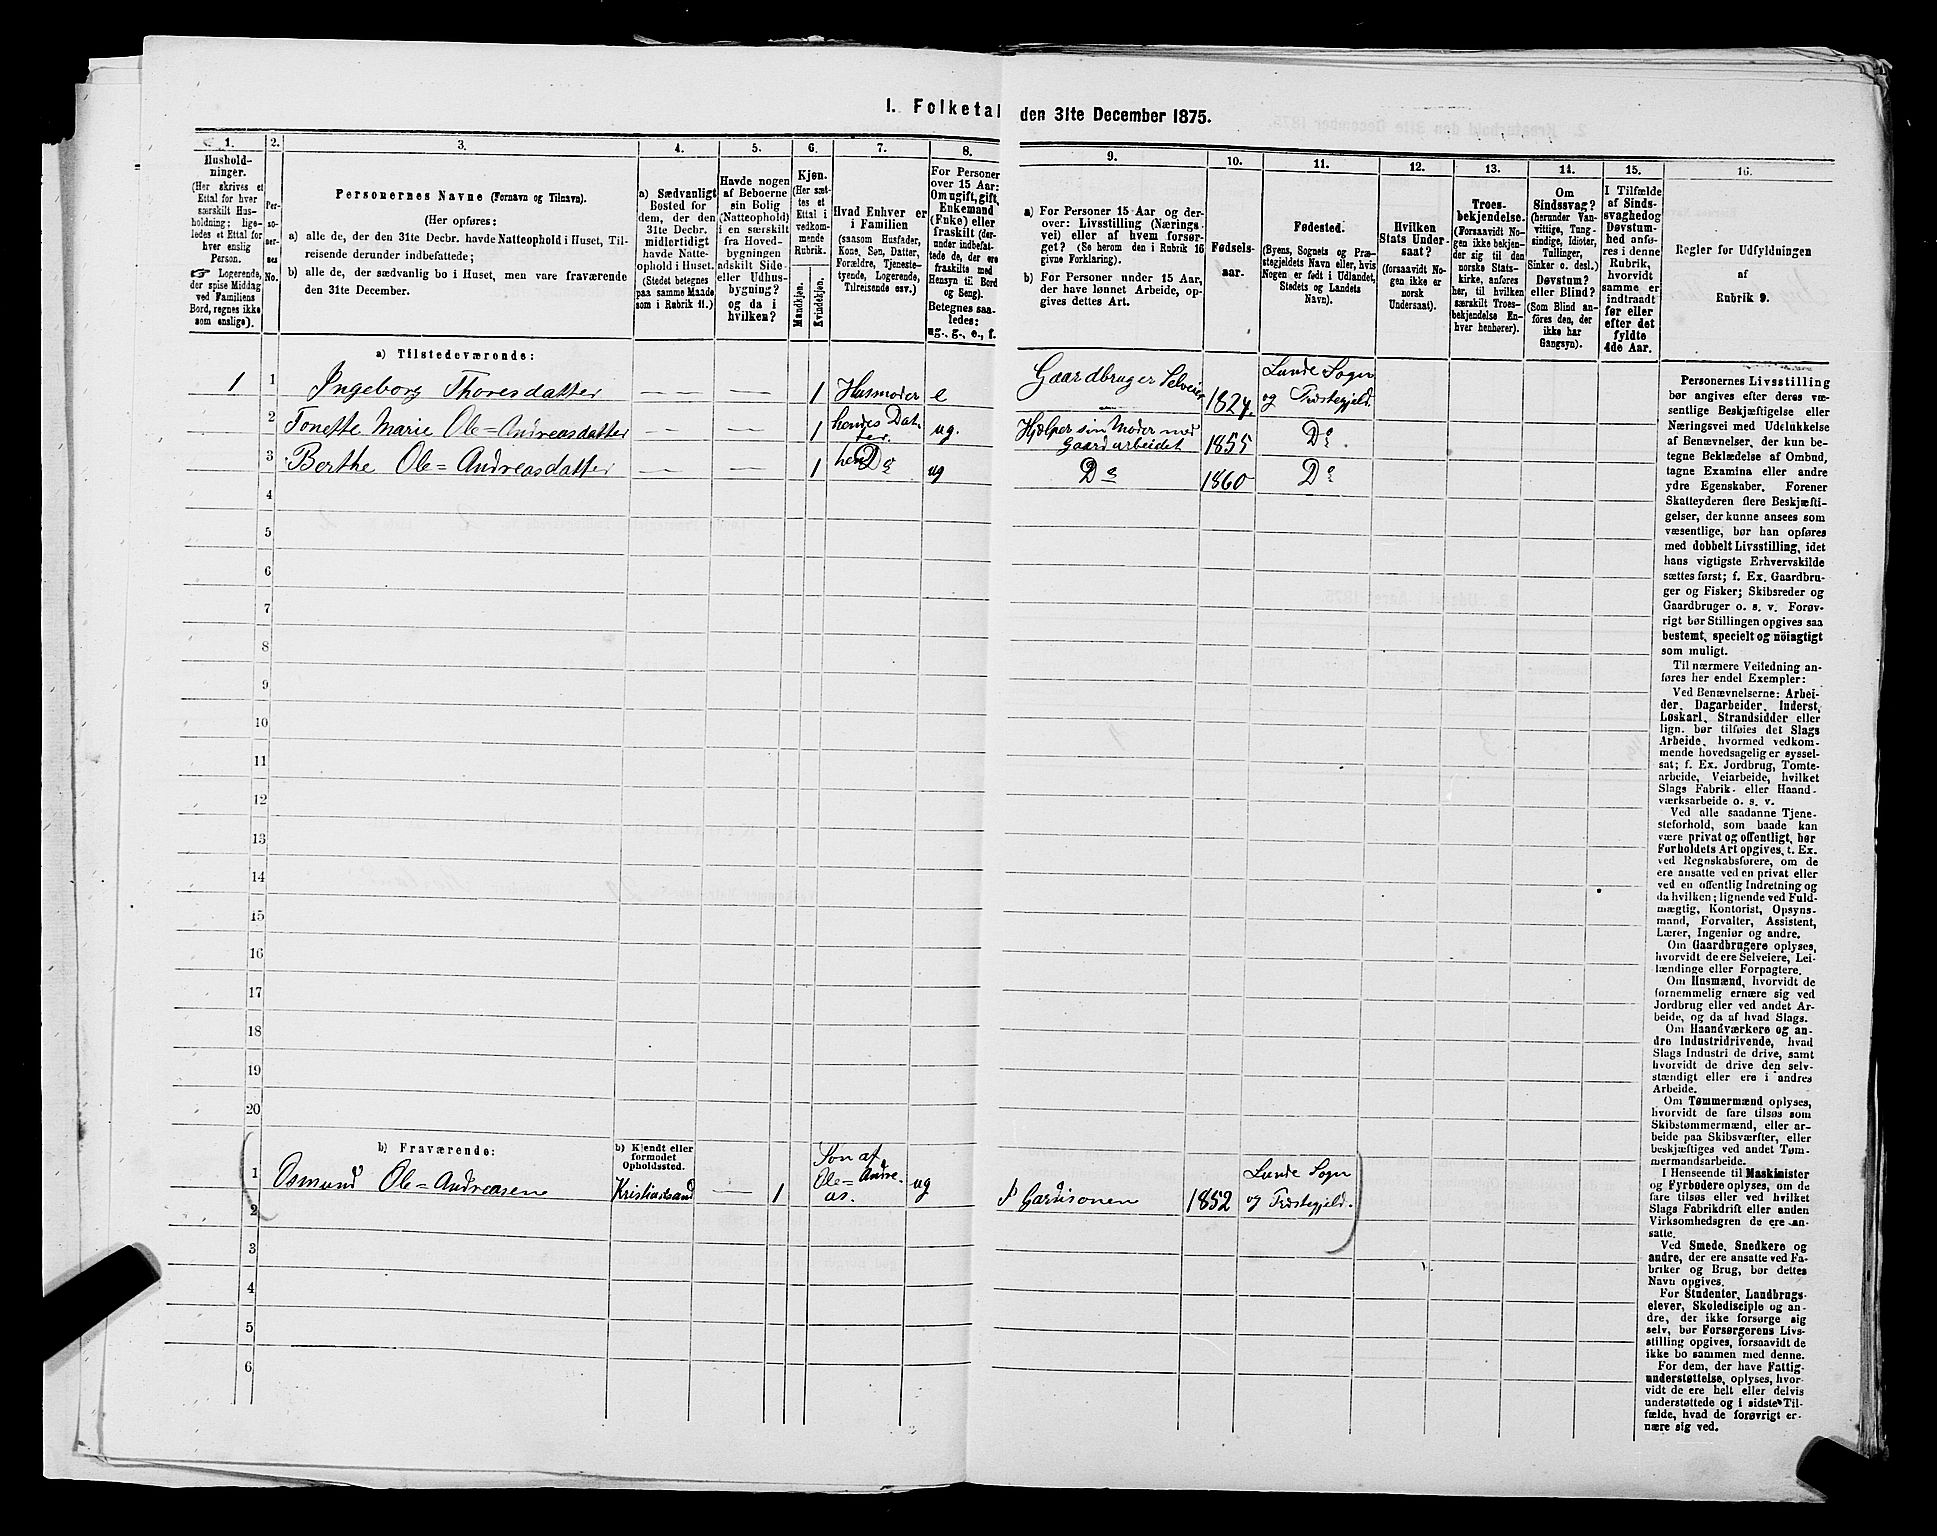 I. Folketal den 31te December 1875.
1.
Hushold-
ninger.
(Her skrives et
Ettal for hver
særskilt Hus-
holdning; lige-
ledes et Ettal for
hver enslig
Person.
☞ Logerende,
der spise Middag
ved Familiens
Bord, regnes ikke
som enslige).
2.
Per-
so-
ner-
nes
No.
3.
Personernes Navne (Fornavn og Tilnavn).
(Her opføres:
a) alle de, der den 31te Decbr. havde Natteophold i Huset, Til-
reisende derunder indbefattede;
b) alle de, der sædvanlig bo i Huset, men vare fraværende
den 31te December.
4.
a) Sædvanligt
Bosted for
dem, der den
31te Decbr.
midlertidigt
havde Natte-
ophold i Huset.
(Stedet betegnes
paa samme Maade
som i Rubrik 11.)
5.
Havde nogen
af Beboerne
sin Bolig
(Natteophold)
i en særskilt
fra Hoved-
bygningen
adskilt Side-
eller Udhus-
bygning?
og da i
hvilken?
6.
Kjøn.
(Her sæt-
tes et
Ettal i
vedkom-
mende
Rubrik.
Mandkjøn.
Kvindekjøn.
7.
Hvad Enhver er
i Familien
(saasom Husfader,
Kone, Søn, Datter,
Forældre, Tjeneste-
tyende, Logerende,
Tilreisende osv.)
8.
For Personer
over 15 Aar:
Om ugift, gift,
Enkemand
(Enke) eller
fraskilt (der-
under indbefat-
tede de, der ere
fraskilte med
Hensyn til Bord
og Seng).
Betegnes saa-
ledes:
ug., g., e., f.
9.
a) For Personer 15 Aar og der-
over: Livsstilling (Nærings-
vei) eller af hvem forsør-
get? (Se herom den i Rubrik 16
givne Forklaring).
b) For Personer under 15 Aar,
der have lønnet Arbeide, op-
gives dettes Art.
10.
Fødsels-
aar.
11.
Fødested.
(Byens, Sognets og Præ-
stegjeldets Navn eller, hvis
Nogen er født i Udlandet,
Stedets og Landets
Navn).
12.
Hvilken
Stats Under-
saat?
(forsaavidt No-
gen ikke er
norsk
Undersaat).
13.
Troes-
bekjendelse.
(Forsaavidt No-
gen ikke bekjen-
der sig til den
norske Stats-
kirke, anføres
her, til hvilken
særskilt Troes-
bekjendelse En-
hver henhører).
14.
Om
Sindssvag?
(herunder Van-
vittige, Tung-
sindige, Idioter,
Tullinger,
Sinker o. desl.)
Døvstum?
eller Blind?
(Som Blind an-
føres den, der
ikke har
Gangsyn).
15.
I Tilfælde
af Sinds-
svaghed og
Døvstum-
hed anfø-
res i denne
Rubrik,
hvorvidt
samme er
indtraadt
før eller
efter det
fyldte
4de Aar.
16.
Regler for Udfyldningen
af
Rubrik 9.
a) Tilstedeværende:
1 1 Ingeborg Thoresdatter — — 1 Husmoder e Gaardbruger Selveier 1824. Lunde Sogn og Præstegjeld.
2 Tonette Marie Ole=Andreasdatter — — 1 hendes Dat-ter. ug. Hjælper sin Moder med Gaardarbeidet 1855 Do.
3 Berthe Ole=Andreasdatter — — 1 Do ug Do 1860 Do
4
5
6
7
8
9
10
11
12
13
14
15
16
17
18
19
20
b) Fraværende:
b) Kjendt eller
formodet
Opholdssted.
1 Osmund Ole=Andreasen Kristiansand — 1 Søn af Ole=Andreas. ug Gardisonen 1852 Lunde Sogn og Præstegjeld.
2
3
4
5
6
Personernes Livsstilling
bør angives efter deres væ-
sentlige Beskjæftigelse eller
Næringsvei med Udelukkelse
af Benævnelser, der kun be-
tegne Beklædelse af Ombud,
tagne Examina eller andre
ydre Egenskaber. Forener
Skatteyderen flere Beskjæfti-
gelser, der kunne ansees som
væsentlige, bør han opføres
med dobbelt Livsstilling, idet
hans vigtigste Erhvervskilde
sættes først; f. Ex. Gaardbru-
ger og Fisker; Skibsreder og
Gaardbruger o. s. v. Forøv-
rigt bør Stillingen opgives saa
bestemt, specielt og nöiagtigt
som muligt.
Til nærmere Veiledning an-
føres her endel Exempler:
Ved Benævnelserne: Arbei-
der, Dagarbeider, Inderst,
Løskarl, Strandsidder eller
lign. bør tilføies det Slags
Arbeide, hvormed vedkom-
mende hovedsagelig er syssel-
sat; f. Ex. Jordbrug, Tomte-
arbeide, Veiarbeide, hvilket
Slags Fabrik- eller Haand-
værksarbeide o. s. v.
Ved alle saadanne Tjene-
steforhold, som baade kan
være privat og offentligt, bør
Forholdets Art opgives, t. Ex.
ved Regnskabsførere, om de
ere ansatte ved en privat eller
ved en offentlig Indretning og
da hvilken; lignende ved Fuld-
mægtig, Kontorist, Opsyns-
mand, Forvalter, Assistent,
Lærer, Ingeniør og andre.
Om Gaardbrugere oplyses,
hvorvidt de ere Selveiere, Lei-
lændinge eller Forpagtere.
Om Husmænd, hvorvidt de
fornemmelig ernære sig ved
Jordbrug eller ved andet Ar-
beide, og da af hvad Slags.
Om Haandværkere og an-
dre Industridrivende, hvad
Slags Industri de drive, samt
hvorvidt de drive den selv-
stændigt eller ere i andres
Arbeide.
Om Tømmermænd oplyses,
hvorvidt de fare tilsøs som
Skibstømmermænd, eller ar-
beide paa Skibsværfter, eller
beskjæftiges ved andet Tøm-
mermandsarbeide.
I Henseende til Maskinister
og Fyrbødere oplyses, om de
fare tilsøs eller ved hvilket
Slags Fabrikdrift eller anden
Virksomhedsgren de ere an-
satte.
Ved Smede, Snedkere og
andre, der ere ansatte ved Fa-
briker og Brug, bør dettes
Navn opgives.
For Studenter, Landbrugs-
elever, Skoledisciple og an-
dre, der ikke forsørge sig
selv, bør Forsørgerens Livs-
stilling opgives, forsaavidt de
ikke bo sammen med denne.
For dem, der have Fattig-
understøttelse, oplyses, hvor-
vidt de ere helt eller delvis
understøttede og i sidste Til-
fælde, hvad de forøvrigt er-
nære sig ved.